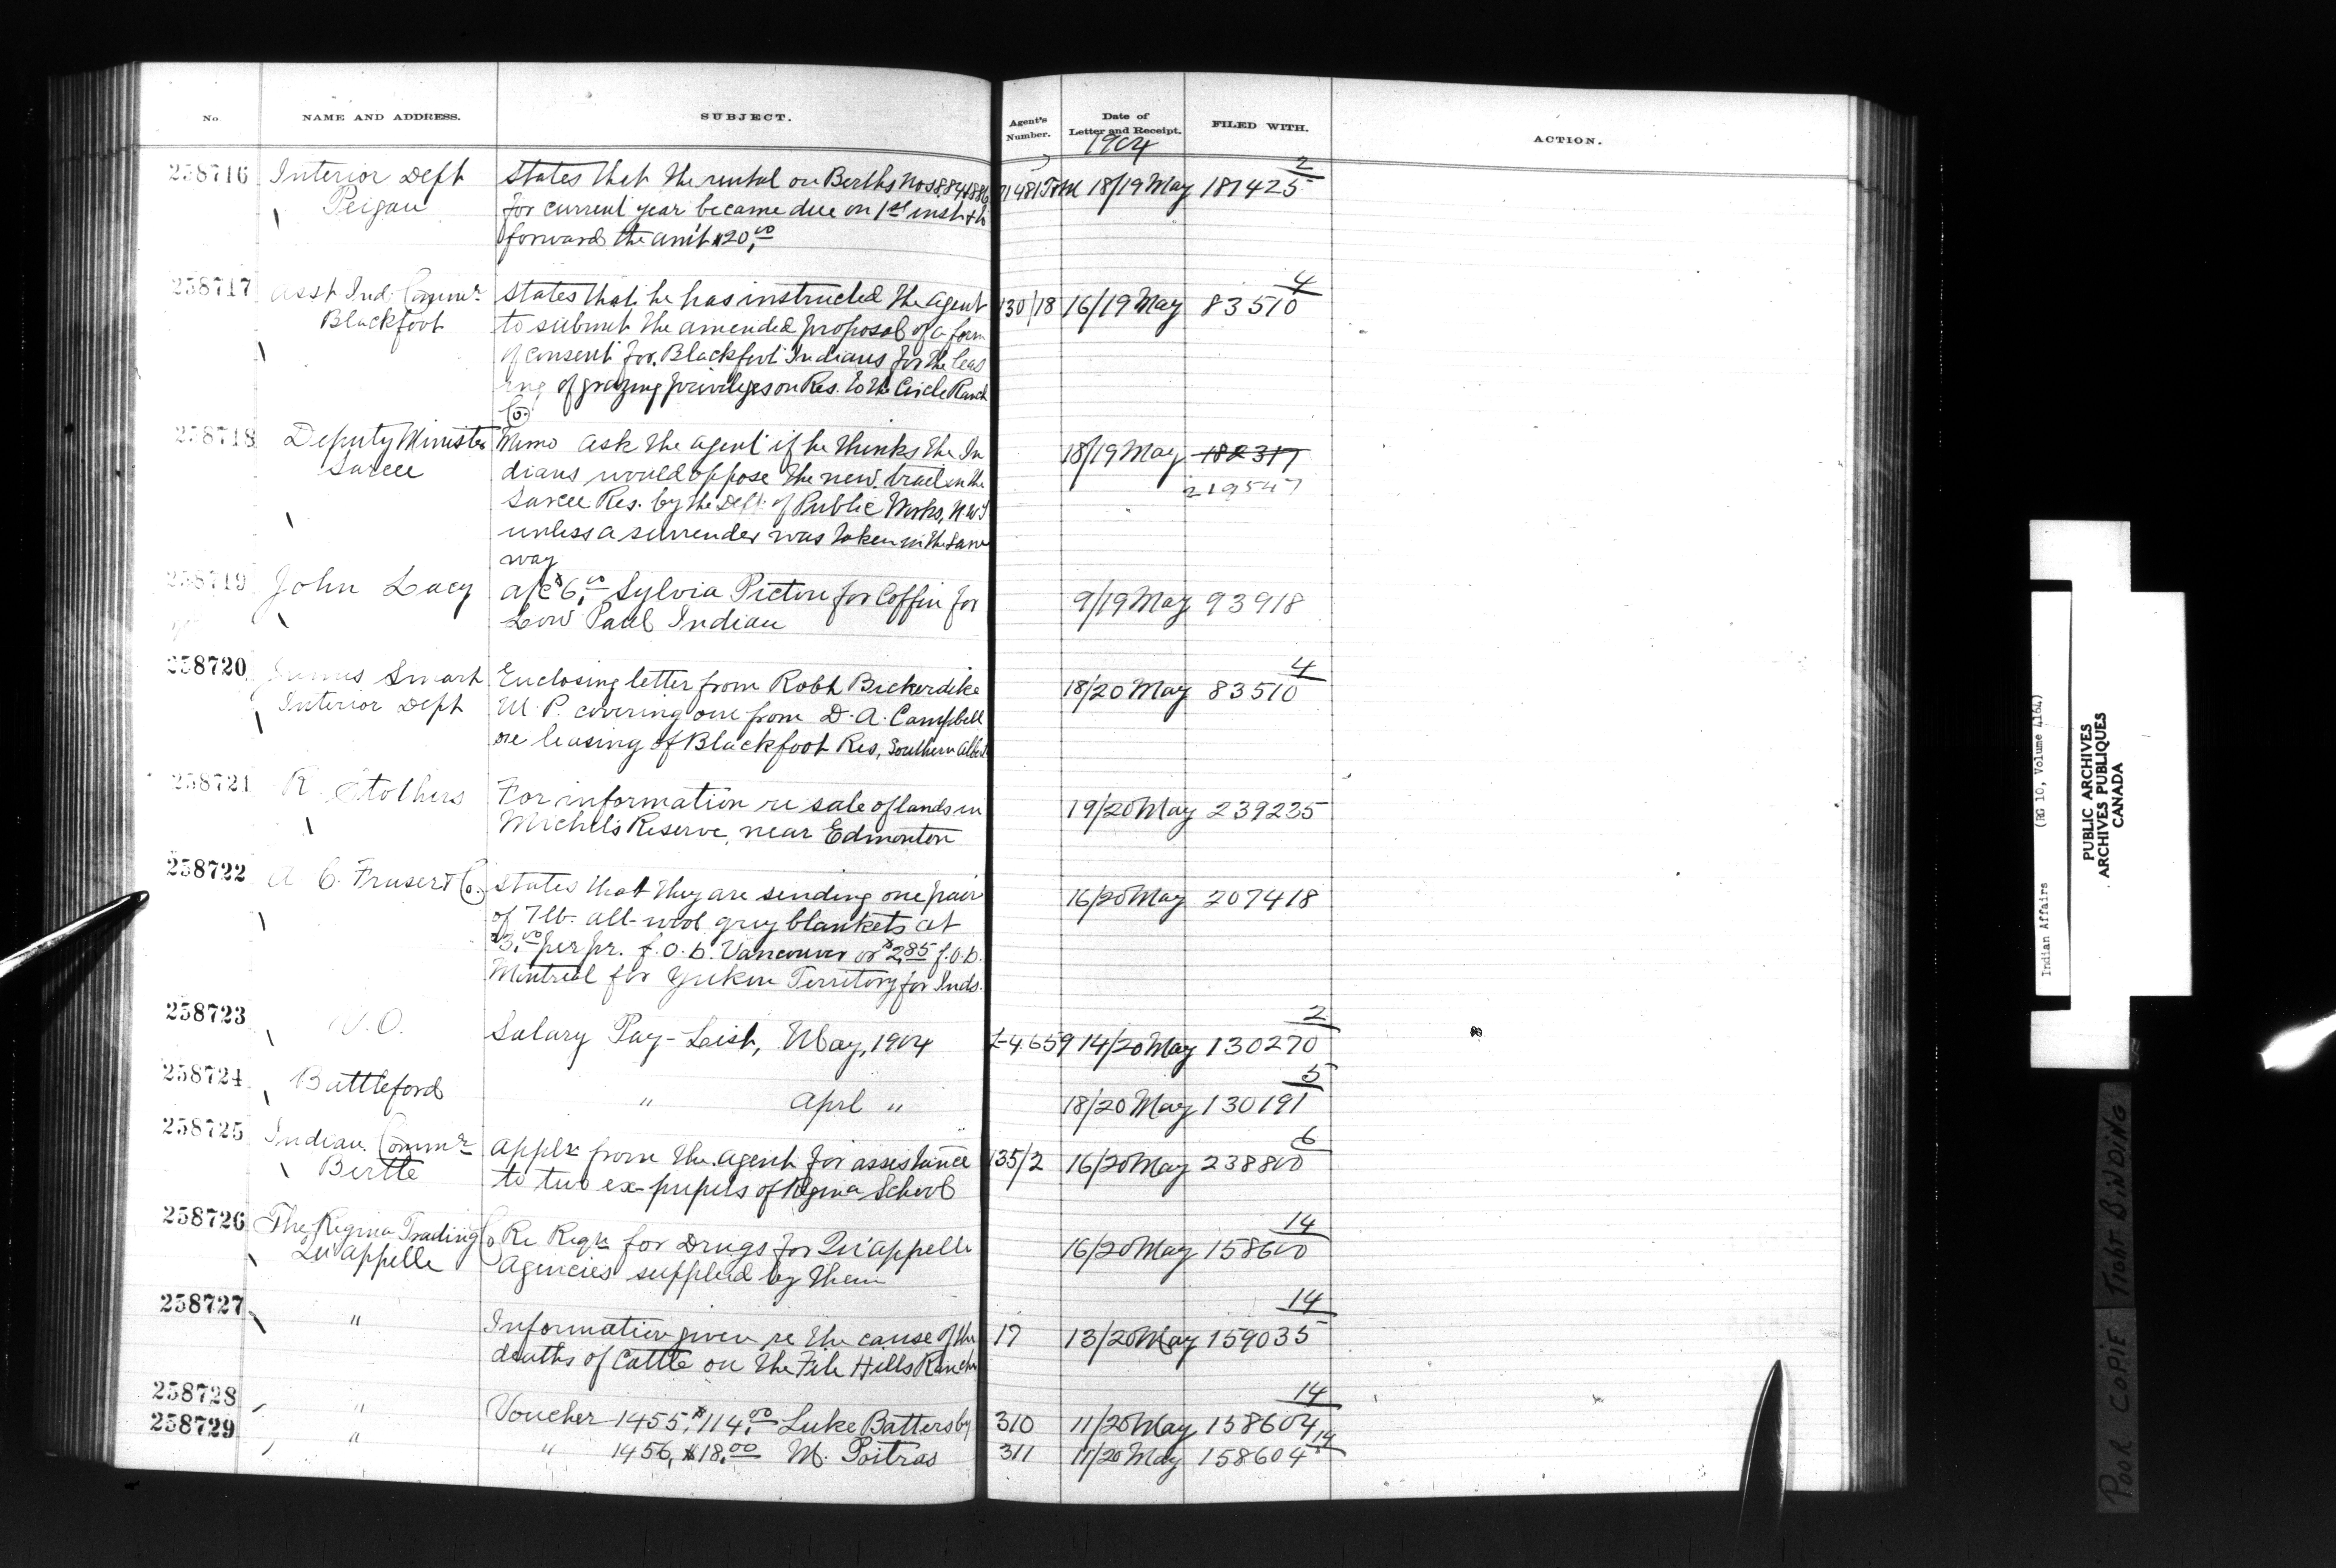 No. NAME AND ADDRESS. SUBJECT. Agent's Number. Date of Letter and Receipt. FILED WITH. ACTION.
1904
258716 Interior Dept States that the rental on Berths Nos 884 & 886 18/19 May 187425 2
Peigan for current year became due on 1st inst &
forwards the am't $20.00
258717 Asst Ind. Commr States that he has instructed the agent 130/18 16/19 May 83510 4
Blackfoot to submit the amended proposal of a form
of consent for Blackfoot Indians for the leas
ing of grazing privileges on Res. to the Circle Ranch
Co.
258718 Deputy Minister Memo ask the agent if he thinks the In 18/19 May 182317
Sarcee dians would oppose the new trail in the 219547
Sarcee Res. by the Dept. of Public Works, N.W.T
unless a surrender was taken in the same
way
258719 John Lacy a/c $6.00 Sylvia Picton for Coffin for 9/19 May 93918
Low Paul Indian
258720 James Smart Enclosing letter from Robt Bickerdike 18/20 May 83510 4
Interior Dept M.P. covering one from D.A. Campbell
re leasing of Blackfoot Res, Southern Alberta
258721 R. Stothers For information re sale of lands in 19/20 May 239235
Michel's Reserve, near Edmonton
258722 A C. Fraser & Co. States that they are sending one pair 16/20 May 207418
of 7 lb. all-wool grey blankets at
$3.00 per pr. f.o.b. Vancouver or $2.85 f.o.b.
Montreal for Yukon Territory for Inds.
258723 W.O. Salary Pay-List, May, 1904 L-4659 14/20 May 130270 2
258724 Battleford " April " 18/20 May 130191 5
258725 Indian Commr Applx from the agent for assistance 135/2 16/20 May 238800 6
Birtle to two ex-pupils of Regina School
258726 The Regina Trading Co Re Reqn for Drugs for Qu'appelle 16/20 May 158600 14
Qu'appelle Agencies supplied by them
258727 " Information given re the cause of the 17 13/20 May 159035 14
deaths of Cattle on the File Hills Ranche
258728 " Voucher 1455, $114.00 Luke Battersby 310 11/20 May 158604 14
258729 " " 1456, $18.00 M. Poitras 311 11/20 May 158604 14
Indian Affairs (RG 10, Volume 4164)
PUBLIC ARCHIVES
ARCHIVES PUBLIQUES
CANADA
POOR COPIE TIGHT BINDING